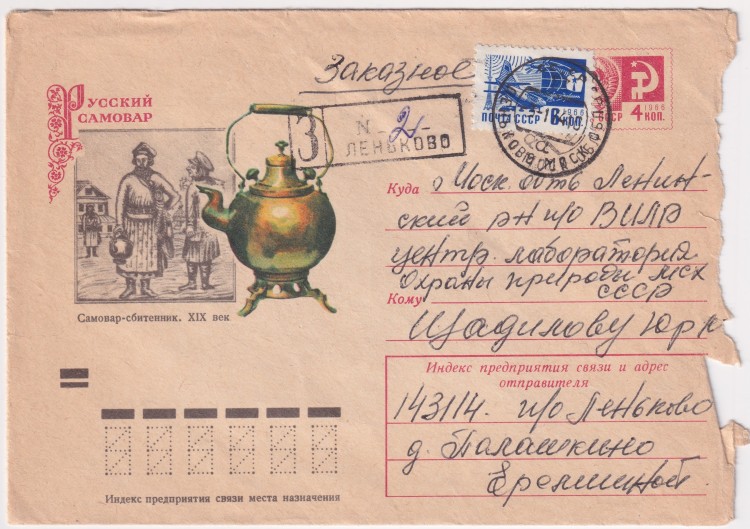 Заказное
РУССКИЙ
САМОВАР
З
N 2-
ЛЕНЬКОВО
ПОЧТА СССР
1966
6 КОП.
1966
4 КОП.
Куда Моск. обть Ленин-
ский р-н п/о ВИЛР
центр. лаборатория
охраны природы МСХ
СССР
Кому
Щадилову Юр
Самовар-сбитенник. XIX век
Индекс предприятия связи и адрес
отправителя
143114. п/о Леньково
д. Палашкино
Ереминой
Индекс предприятия связи места назначения